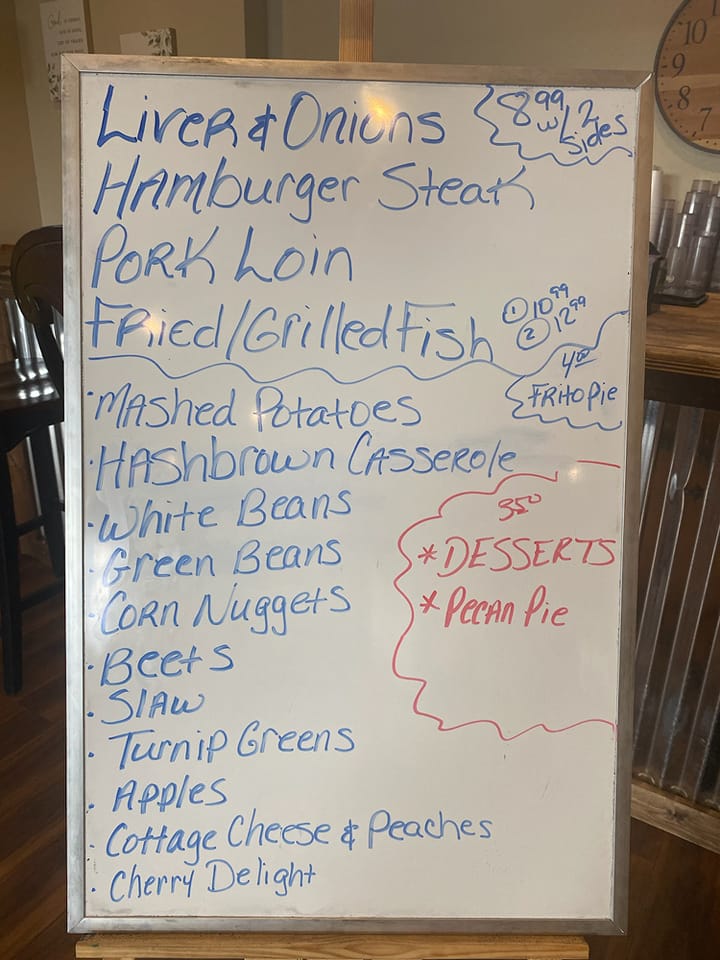 Liver & Onions
8.99 w/ 2 sides
Hamburger Steak
Pork Loin
Fried/Grilled Fish
① 10.99
② 12.99
4.00
Frito Pie
·Mashed Potatoes
·Hashbrown Casserole
·White Beans
·Green Beans
·Corn Nuggets
·Beets
·Slaw
·Turnip Greens
·Apples
·Cottage Cheese & Peaches
·Cherry Delight
3.50
*DESSERTS
*Pecan Pie
10
9
8
7